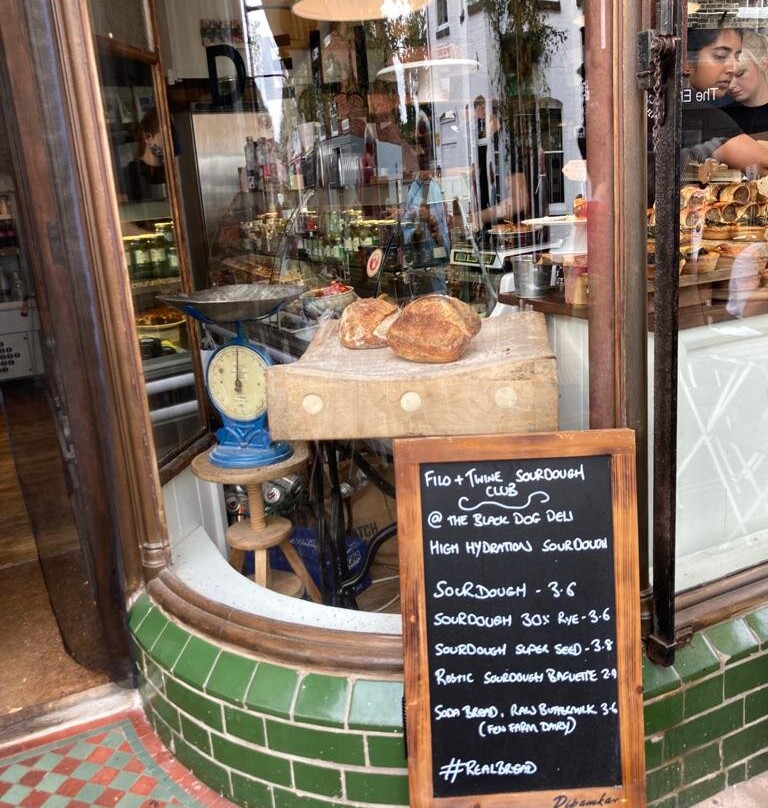 The E
FILO + TWINE SOURDOUGH
CLUB
@ THE BLACK DOG DELI
HIGH HYDRATION SOURDOUGH
SOURDOUGH - 3.6
SOURDOUGH 30% RYE - 3.6
SOURDOUGH SUPER SEED - 3.8
RUSTIC SOURDOUGH BAGUETTE 2.9
SODA BREAD, RAW BUTTERMILK 3.6
(FEN FARM DAIRY)
#REALBREAD
Debamkar